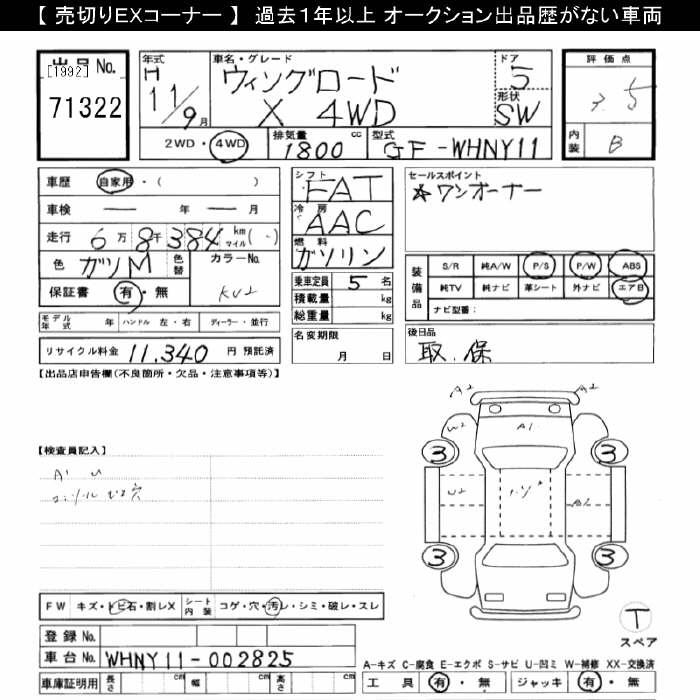 【 売切りEXコーナー 】 過去１年以上 オークション出品歴がない車両
出品No.
[1992]
71322
年式
H 11/9月
車名・グレード
ウィングロード
X 4WD
ドア
5
形状
SW
評価点
3.5
内装
B
2WD・4WD
排気量
1800 cc
型式
GF-WHNY11
車歴 自家用・( )
車検 ー 年 ー 月
走行 6万8千384 km マイル( - )
色 ガンM 色替
カラーNo.
KV2
保証書 有・無
モデル年式 年 ハンドル 左・右 ディーラー・並行
リサイクル料金 11,340 円 預託済
シフト
FAT
冷房
AAC
燃料
ガソリン
乗車定員 5 名
積載量 kg
総重量 kg
名変期限
月 日
セールスポイント
☆ワンオーナー
装備品
S/R 純A/W P/S P/W ABS
純TV 純ナビ 革シート 外ナビ エアB
ナビ型番：
後日品
取.保
【出品店申告欄(不良箇所・欠品・注意事項等)】
【検査員記入】
A1 U
A2
A2
W2
W2
A1
U2
A2
3
3
3
3
T
スペア
FW キズ・トビ石・割レX
シート内装 コゲ・穴・汚レ・シミ・破レ・スレ
登録No.
車台No. WHNY11-002825
車庫証明用 長さ 幅 高さ
A-キズ C-腐食 E-エクボ S-サビ U-凹ミ W-補修 XX-交換済
工具 有・無 ジャッキ 有・無